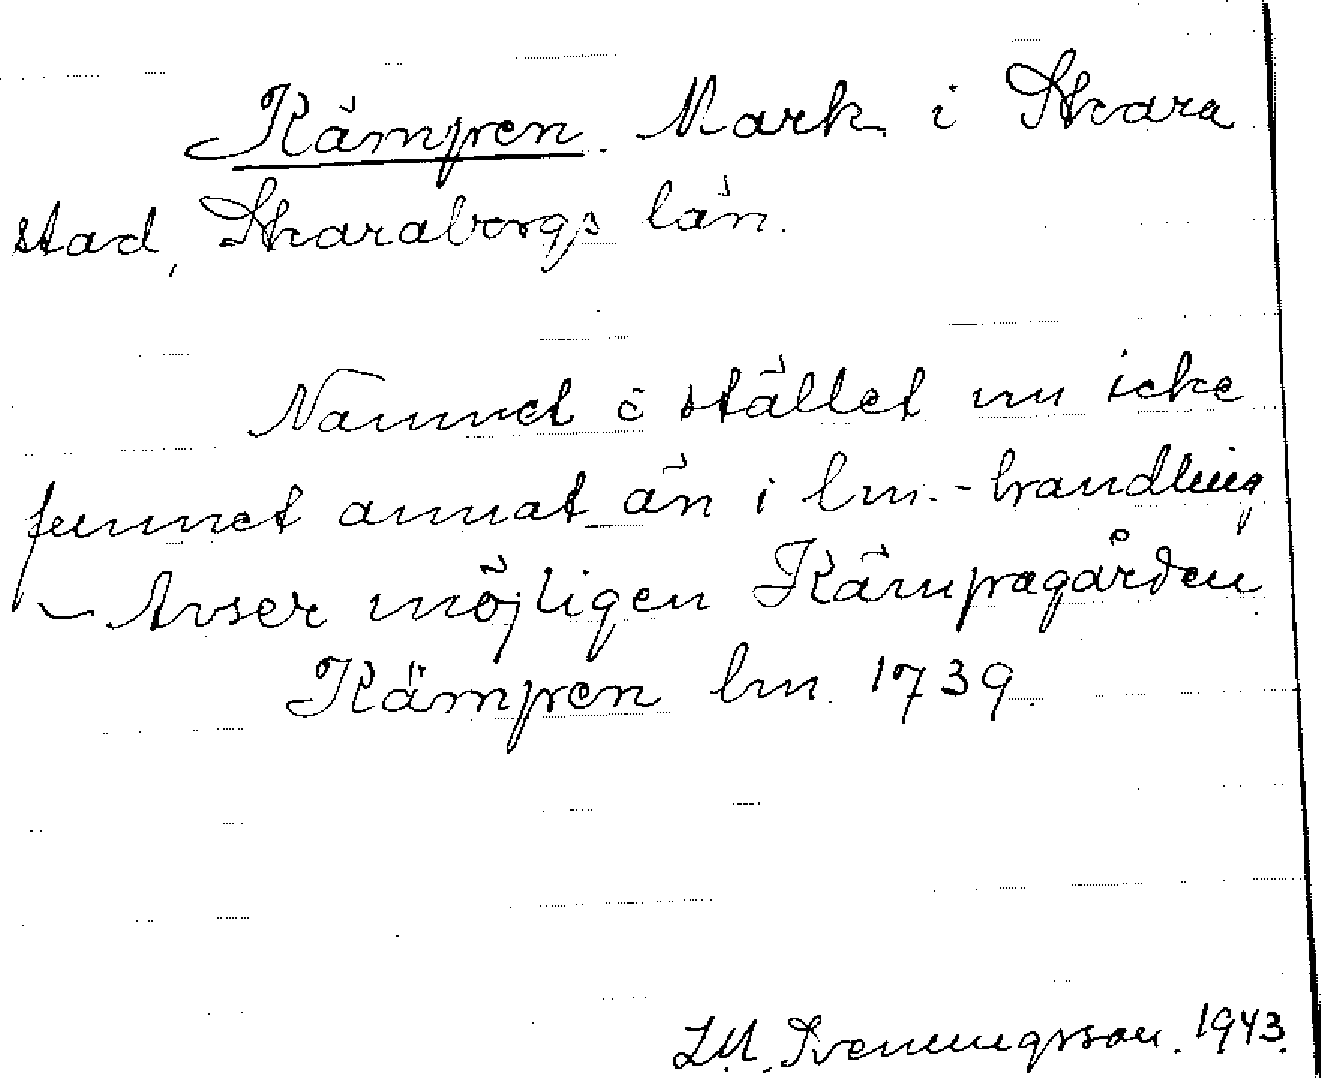 Kämpen. Mark i Skara
stad, Skaraborgs län.
Namnet å stället nu icke
funnet annat än i lm.-handling
– Avser möjligen Kämpagården
Kämpen lm. 1739.
Sveningsson. 1943.